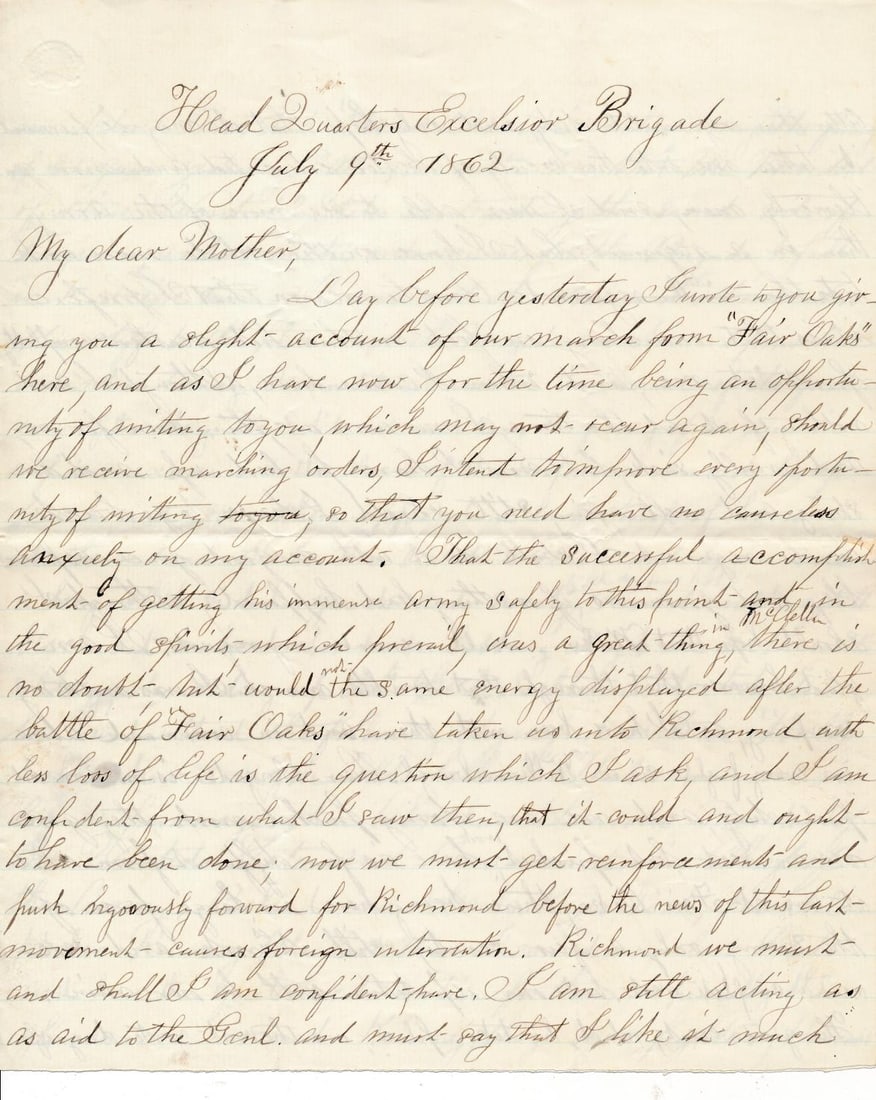 Head Quarters Excelsior Brigade
July 9th 1862
My dear Mother,
Day before yesterday I wrote to you giv-
ing you a slight account of our march from "Fair Oaks"
here, and as I have now for the time being an opportu-
nity of writing to you, which may not occur again, should
we receive marching orders, I intend to improve every oportu-
nity of writing to you, so that you need have no causeless
anxiety on my account. That the successful accomplish
ment of getting his immense army safely to this point and in
the good spirits which prevail, was a great thing in McClellan, there is
no doubt, but would not the same energy displayed after the
battle of "Fair Oaks" have taken us into Richmond with
less loss of life is the question which I ask, and I am
confident from what I saw then, that it could and ought
to have been done; now we must get reinforcements and
push vigorously forward for Richmond before the news of this last
movement causes foreign intervention. Richmond we must
and shall I am confident, have. I am still acting as
as aid to the Genl. and must say that I like it much